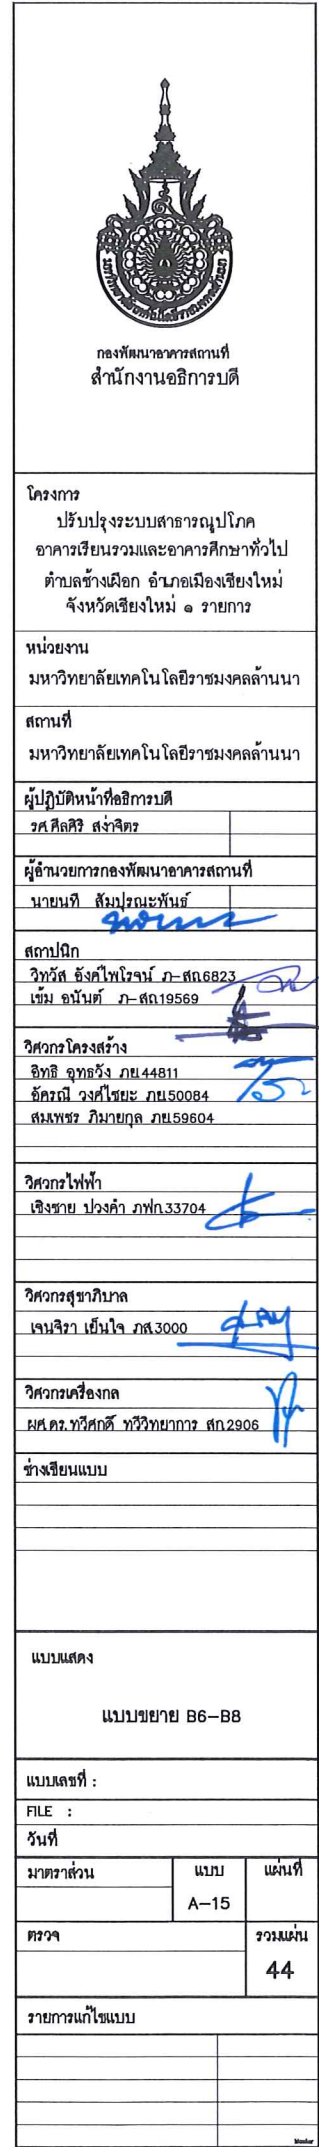 กองพัฒนาอาคารสถานที่
สำนักงานอธิการบดี
โครงการ
ปรับปรุงระบบสาธารณูปโภค
อาคารเรียนรวมและอาคารศึกษาทั่วไป
ตำบลช้างเผือก อำเภอเมืองเชียงใหม่
จังหวัดเชียงใหม่ ๑ รายการ
หน่วยงาน
มหาวิทยาลัยเทคโนโลยีราชมงคลล้านนา
สถานที่
มหาวิทยาลัยเทคโนโลยีราชมงคลล้านนา
ผู้ปฏิบัติหน้าที่อธิการบดี
รศ.ศีลศิริ สง่าจิตร
ผู้อำนวยการกองพัฒนาอาคารสถานที่
นายนที สัมปุรณะพันธ์
สถาปนิก
วิทวัส อังศ์ไพโรจน์ ภ-สถ.6823
เข้ม อนันต์ ภ-สถ.19569
วิศวกรโครงสร้าง
อิทธิ อุทธวัง ภย.44811
อัครณี วงศ์ไชยะ ภย.50084
สมเพชร ภิมายกุล ภย.59604
วิศวกรไฟฟ้า
เชิงชาย ปวงคำ ภฟก.33704
วิศวกรสุขาภิบาล
เจนจิรา เย็นใจ ภส.3000
วิศวกรเครื่องกล
ผศ.ดร.ทวีศกดิ์ ทวีวิทยาการ สก.2906
ช่างเขียนแบบ
แบบแสดง
แบบขยาย B6-B8
แบบเลขที่ :
FILE :
วันที่
มาตราส่วน แบบ แผ่นที่
A-15
ตรวจ รวมแผ่น
44
รายการแก้ไขแบบ